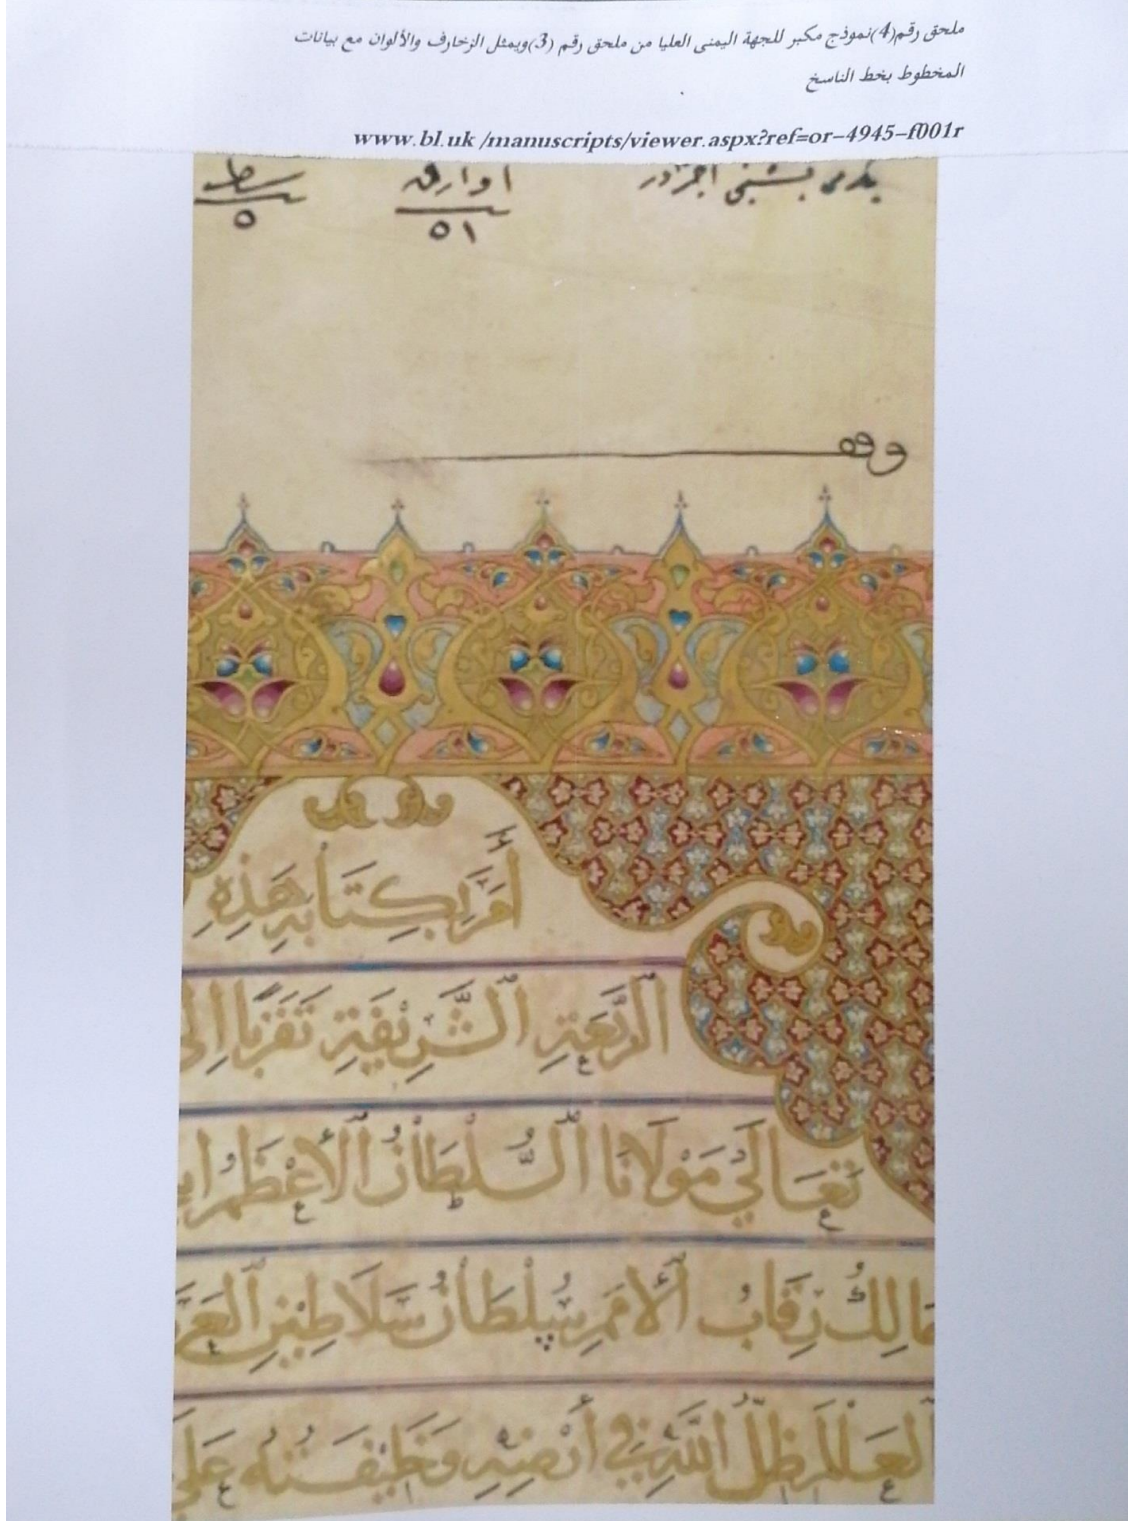 ملحق رقم(4)نموذج مكبر للجهة اليمنى العليا من ملحق رقم (3)ويمثل الزخارف والألوان مع بيانات
المخطوط بخط الناسخ
www.bl.uk /manuscripts/viewer.aspx?ref=or-4945-f001r
اوراق
٥١
سطر
٥
وقف
أَمَرَ بِكِتَابَةِ هَذِهِ
الرَّبْعَةِ الشَّرِيْفَةِ تَقَرُّبًا اِلَى
تَعَالَى مَوْلَانَا السُّلْطَانُ الْأَعْظَمُ
مَالِكُ رِقَابِ الْأُمَمِ سُلْطَانُ سَلَاطِيْنِ الْعَرَ
لعَالَمِ ظِلُّ اللّٰهِ فِي أَرْضِهِ وَخَلِيْفَتُهُ عَلَى